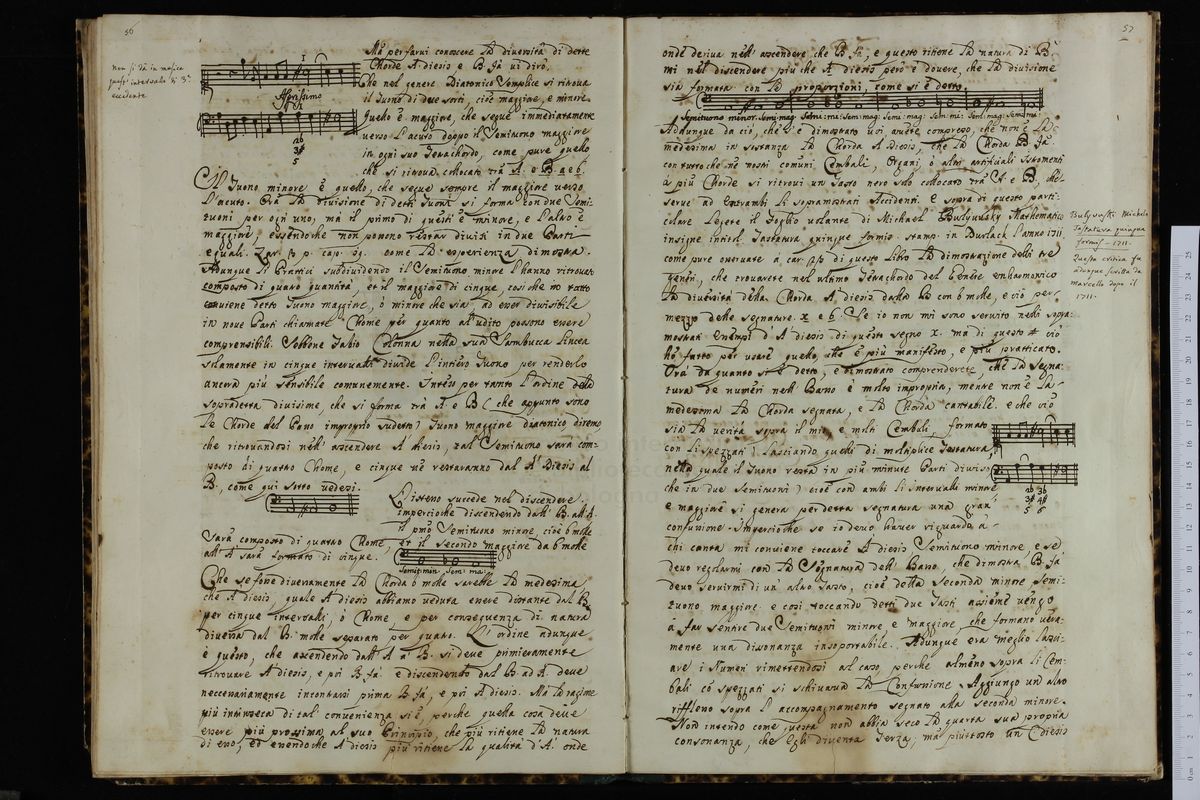 56
non si dà in musica
quest'intervallo di 3ª
eccedente
Mà per farvi conoscere la diversità di dette
Chorde A diesis e B fà vi dirò,
Che nel genere Diatonico Semplice si ritrova
il Tuono di due sorti, cioè maggiore, e minore
Asprissimo
Quello è maggiore, che segue immediatamente
verso l'acuto doppo il Semituono maggiore
in ogni suo Tetrachordo, come pure quello
che si ritrova collocato trà A. e B. a e b.
Il Tuono minore è quello, che segue sempre il maggiore verso
l'acuto. Ora la divisione di detti Tuoni si forma con due Semi-
tuoni per ogni uno, mà il primo di questi è minore, e l'altro è
maggiore essendo che non possono restar divisi in due Parti
eguali. Zar. p. p. cap. 39. come la esperienza dimostra.
Adunque li Prattici subdividendo il Semituono minore l'hanno ritrovato
composto di quatro quantità, et il maggiore di cinque, cosi che in tutto
conviene detto Tuono maggiore, ò minore che sia ad esser divisibile
in nove Parti chiamate Chome per quanto all'udito possono essere
comprensibili. Sebbene Fabio Colonna nella sua Sambucca Lincea
silamente in cinque intervalli divide l'intiero Tuono per renderlo
ancora più sensibile comunemente. Inteso per tanto l'ordine della
sopradetta divisione, che si forma trà A e B (che appunto sono
le Chorde del Caso improprio sudetto) Tuono maggiore diatonico diremo
che ritrovandosi nell'ascendere A diesis, tal Semituono sarà com-
posto di quattro Chome, e cinque nè restaranno dal A Diesis al
B, come qui sotto vedesi.
L'istesso succede nel discendere.
Impercioche discendendo dall' B. all' A.
il pmo Semituono minore, cioè b molle
Sarà composto di quatro Chome, et il secondo maggiore da b molle
all' A sarà formato di cinque.
Semit: min. Sem: ma:
Che se fosse diversamente la Chorda b molle sarebbe la medesima
che A diesis, quale A diesis abbiamo veduta essere distante dal B.
per cinque intervalli, ò Chome, e per conseguenza di natura
diversa dal B. molle separato per quatro. L'ordine adunque
è questo, che ascendendo dall' A à B. si deve primieramente
ritrovare A diesis, e poi B fà e discendendo dal B ad A. deve
necessariamente incontrarsi prima B fà, e poi A diesis. Ma la ragione
più intrinseca di tal' convenienza si è, perche quella cosa deve
essere più prossima al suo Principio, che più ritiene la natura
di esso, ed essendo che A diesis più ritiene la qualità d'A. onde
57
onde deriva nell' ascendere che B fà, e questo ritiene la natura di B
mi nell discendere più che A diesis però è dovere, che la divisione
sia formata con la proporzioni, come si è detto.
Semituono minor. Semi: mag: Semi: mi: Semi: mag: Semi: mi: Semi: mag: Semi: mi:
Addunque da ciò, che si è dimostrato voi avete compreso, che non è la
medesima in sostanza la Chorda A diesis, che la Chorda B fà.
con tutto che nè nostri comuni Cembali, Organi, ò altri artificiali Istomenti
à più Chorde si ritrovi un Tasto nero solo collocato trà A e B, che
serve ad Entrambi li sopramostrati Accidenti. E sopra di questo parti-
colare Legete il Foglio volante di Michael Bulyowsky Mathematico
insigne intitol. Tastatura quinque formis. stamp. in Durlack l'anno 1711.
Bulyowski Michele
Tastatura quinque
formis - 1711.
Questa critica fu
adunque scritta da
Marcello dopo il
1711.
come pure osservate à car. di questo Libro la dimostrazione delli tre
generi, che trovarete nel ultimo Tetrachordo del Genere enharmonico
la diversità della Chorda A diesis dalla B con b molle, e ciò per
mezzo delle segnature. x e b. Se io non mi sono servito nelli sopra-
mostrati Esempi d'A diesis di questo segno x. mà di questo # ciò
hò fatto per usare quello che è più manifesto, e più pratticato.
Ora da quanto si è detto, e dimostrato comprenderete, che la segna-
tura de numeri nell Basso è molto impropria, mentre non è la
medesima la Chorda segnata, e la Chorda cantabile. e che ciò
sia la verità sopra il mio e molti Cembali, formato
con li spezzati (lasciando quelli di moltiplice Tastatura
nella quale il Tuono resta in più minute Parti diviso
che in due Semituoni) cioè con ambi li intervalli minore
e maggiore si genera per detta segnatura una gran
confusione. Impercioche se io devo haver riguardo à
chi canta mi conviene toccare A diesis Semituono minore, e se
devo regolarmi con la Segnatura dell' Basso, che dimostra B fà
devo servirmi di un' altro Tasto, cioè della Seconda minore Semi-
tuono maggiore e così toccando detti due Tasti assieme vengo
à far sentire due Semituoni minore e maggiore, che formano vera-
mente una dissonanza insopportabile. Adunque era meglio lasci-
are i Numeri rimettendosi al caso, perche almeno sopra li Cem-
bali co spezzati si schivava la Confusione. Aggiungo un altro
rifflesso sopra l'accompagnamento segnato alla seconda minore.
Non intendo come questa non abbia seco la quarta sua propria
consonanza, che Egli diventa Terza; mà piùttosto un C diesis